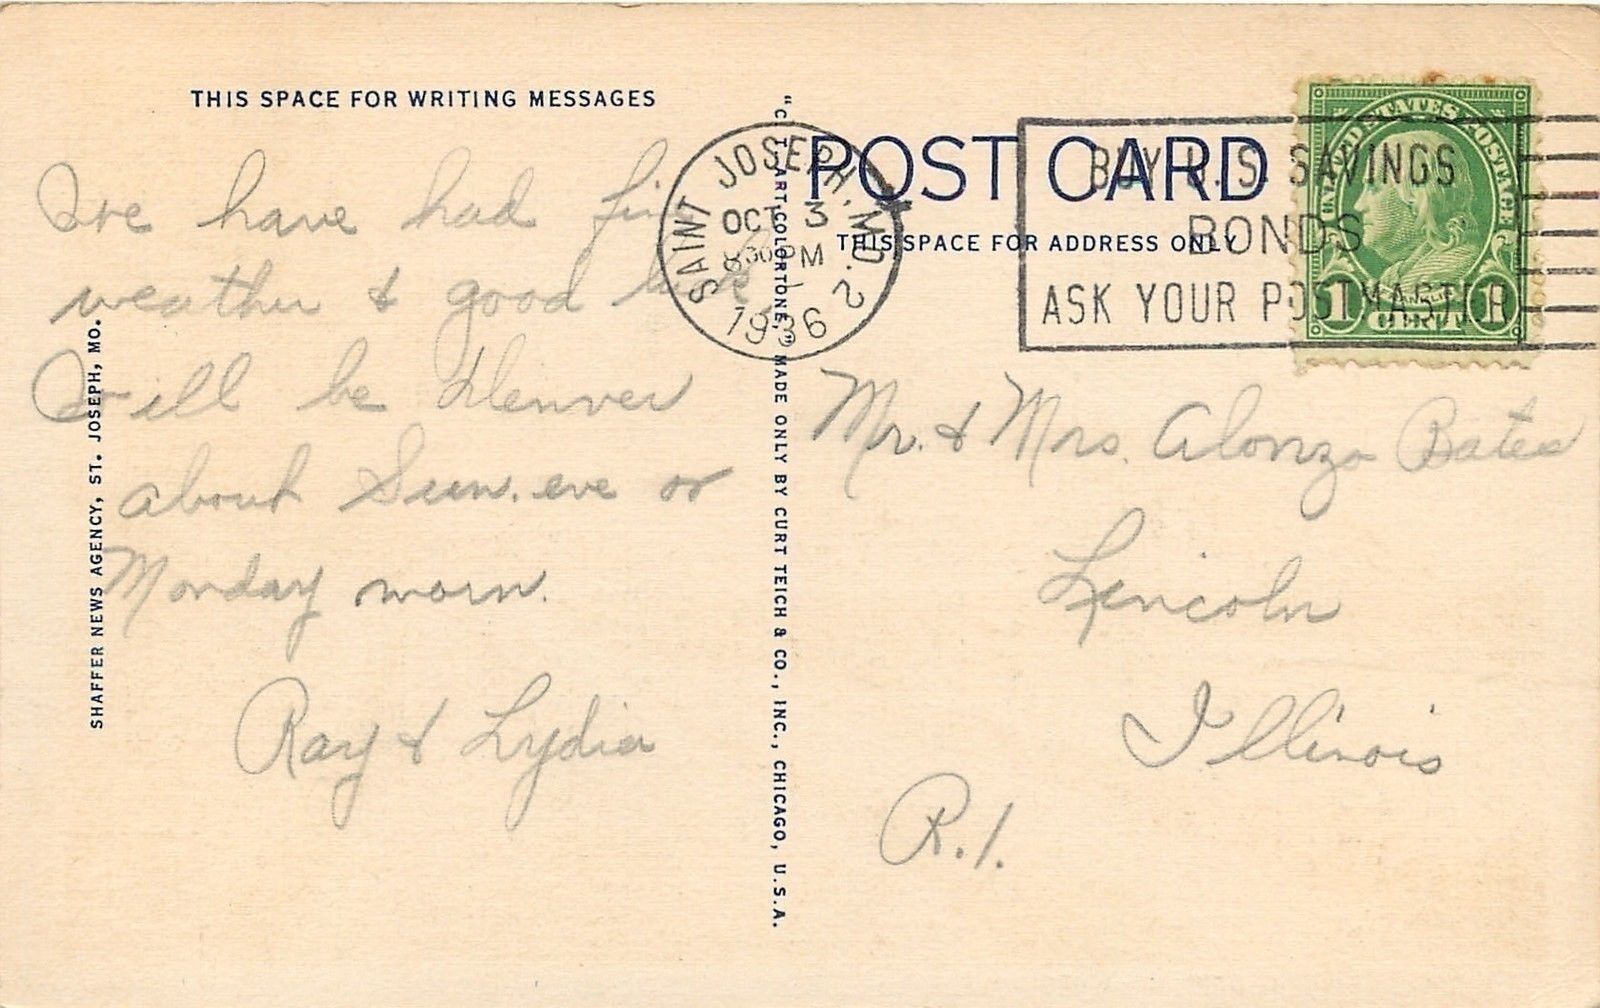 THIS SPACE FOR WRITING MESSAGES
We have had fine
weather & good luck
Will be Denver
about Sun. eve or
Monday morn.
Ray & Lydia
SHAFFER NEWS AGENCY, ST. JOSEPH, MO.
"C. T. ART-COLORTONE," MADE ONLY BY CURT TEICH & CO., INC., CHICAGO, U.S.A.
POST CARD
THIS SPACE FOR ADDRESS ONLY
SAINT JOSEPH, MO. 2
OCT 3
8 30 PM
1936
BUY U.S. SAVINGS
BONDS
ASK YOUR POSTMASTER
UNITED STATES POSTAGE
FRANKLIN
1 CENT 1
Mr. & Mrs. Alonzo Bates
Lincoln
Illinois
R.1.